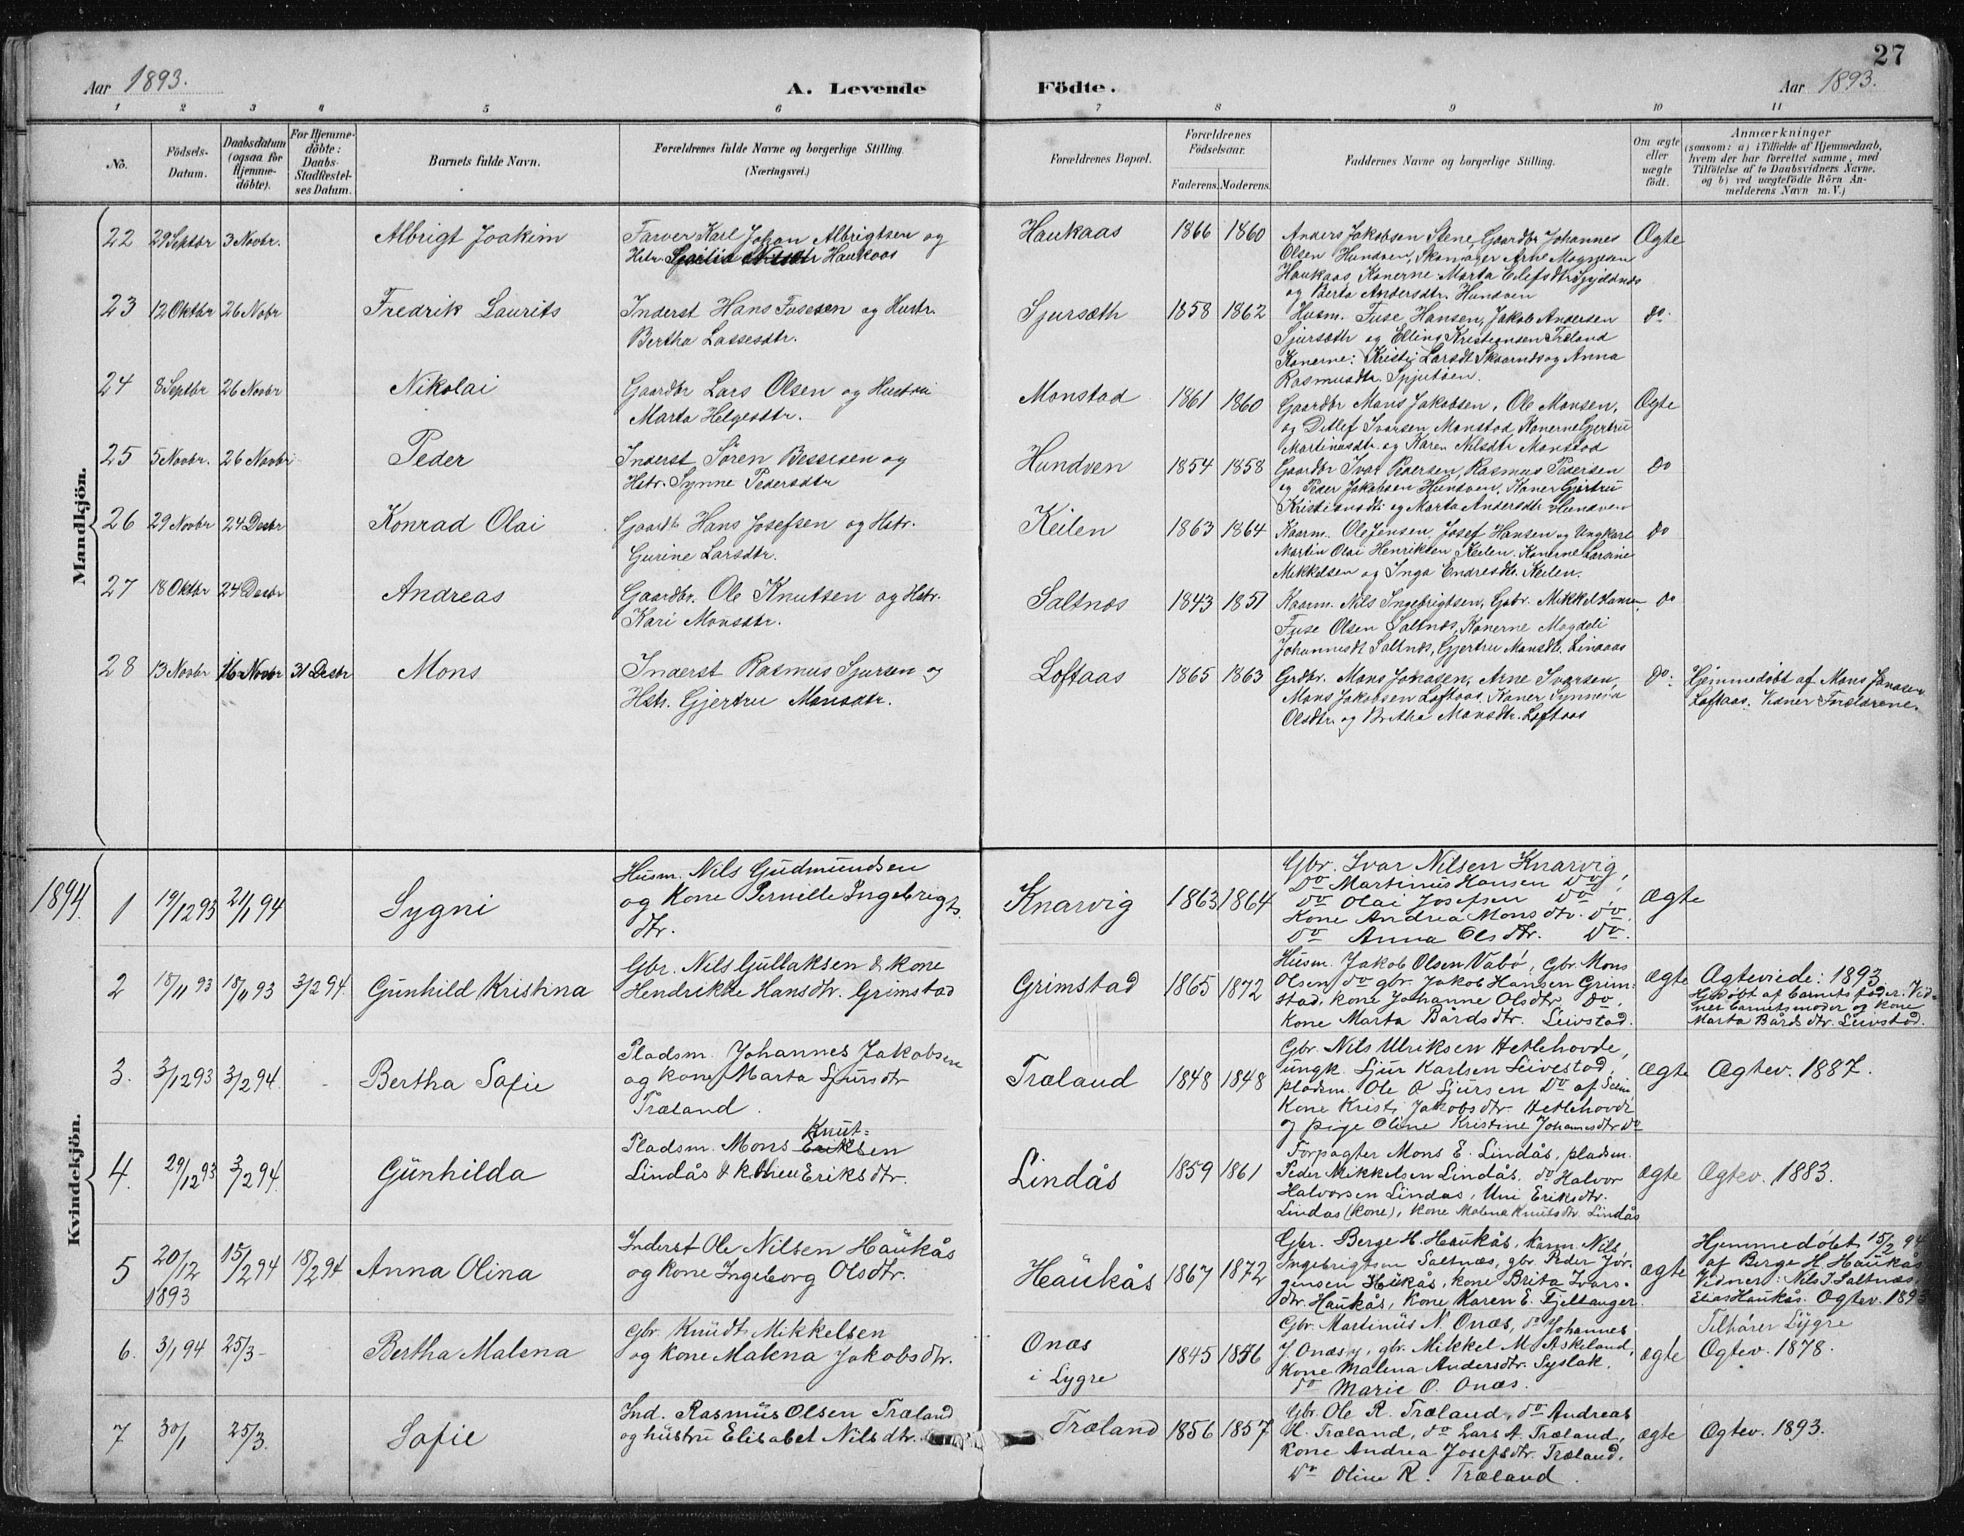 27
Aar 1893.
A. Levende
Födte.
Aar 1893.
1 2 3 4 5 6 7 8 9 10 11
No.
Födsels-
Datum.
Daabsdatum
(ogsaa for
Hjemme-
döbte).
For Hjemme-
döbte:
Daabs-
Stadfæstel-
ses Datum.
Barnets fulde Navn.
Forældrenes fulde Navne og borgerlige Stilling.
(Næringsvei.)
Forældrenes Bopæl.
Forældrenes
Födselsaar.
Faderens. Moderens.
Faddernes Navne og borgerlige Stilling.
Om ægte
eller
uægte
födt.
Anmærkninger
(saasom: a) i Tilfælde af Hjemmedaab,
hvem der har forrettet samme, med
Tilföielse af to Daabsvidners Navne.
og b) ved uægtefödte Börn An-
melderens Navn m. V.)
Mandkjön.
22 29 Septbr 3 Novbr. Albrigt Joakim
Farver Karl Johan Albrigtsen og
Hstr. Haukaas
Haukaas 1866 1860
Anders Jakobsen Stene, Gaardbr Johannes
Olsen Hundven, Skomager Arne Mognesen
Haukaas, Konerne Marta Eilefsdtr
og Berta Andersdtr. Hundven
Ægte
23 12 Oktbr 26 Nobr Fredrik Laurits
Inderst Hans Fusesen og Hustr.
Bertha Lassesdtr.
Sjursæth 1858 1862
Husm. Fuse Hansen, Jakob Andersen
Sjursæth og Elling Kristiansen Træland
Konerne: Kristi Larsdt og Anna
Rasmusdtr. Spjutøen.
do.
24 8 Septbr 26 Novbr Nikolai
Gaardbr Lars Olsen og Hustru
Marta Helgesdtr.
Monstad 1861 1860
Gaardbr Mons Jakobsen, Ole Monsen,
og Ditlef Ivarsen Monstad Konerne Gjertru
Martinusdtr og Karen Nilsdtr Monstad
Ægte
25 5 Novbr. 26 Novbr Peder
Inderst Søren Bessesen og
Hstr. Synne Pedersdtr
Hundven 1854 1858
Gaardbr Ivar Pedersen, Rasmus Pedersen
og Peder Jakobsen Hundven, Koner Gjertru
Kristiansdt. og Marta Andersdtr Hundven
do
26 29 Novbr 24 Desbr Konrad Olai
Gaardbr Hans Josefsen og Hstr.
Gurine Larsdtr.
Keilen 1863 1864
Kaarm. Ole Jensen, Josef Hansen og Ungkarl
Martin Olai Henriksen Keilen. Konerne Larsine
Mikkelsen og Inga Endresdtr. Keilen.
do
27 18 Oktbr 24 Desbr Andreas
Gaardbr. Ole Knutsen og Hstr.
Kari Monsdtr.
Saltnæs 1843 1851
Kaarm. Nils Ingebrigtsen, Gbr. Mikkel Hansen,
Fuse Olsen Saltnæs, Konerne Magdeli
Johannesdt Saltnæs, Gjertru Monsdt. Lindaas
do
28 13 Novbr 16 Novbr 31 Desbr Mons
Inderst Rasmus Sjursen og
Hstr. Gjertru Monsdtr.
Loftaas 1865 1863
Grdbr. Mons Jonasen, Arne Ivarsen,
Mons Jakobsen Loftaas. Koner Synneva
Olsdtr. og Britha Monsdtr. Loftaas
do:
Hjemmedøbt af Mons Jonasen
Loftaas. Vidner Forældrene.
1894.
Kvindekjön.
1 19/12 93 21/1 94 Sygni
Husm. Nils Gudmundsen
og Kone Pernille Ingebrigts
dtr.
Knarvig 1863 1864
Gbr. Ivar Nilsen Knarvig,
Do Martinus Hansen Do,
Do Olai Josefsen Do,
Kone Andrea Monsdtr. Do.
Do Anna Olsdtr. Do.
Ægte
2 18/11 93 18/11 93 3/2 94. Gunhild Kristina
Gbr. Nils Gullaksen & kone
Hendrikke Hansdtr. Grimstad
Grimstad 1865 1872
Husm. Jakob Olsen Vabø, Gbr. Mons
Olsen do gbr. Jakob Hansen Grim-
stad, kone Johanne Olsdtr do,
Kone Marta Bårdsdtr. Leivstad.
Ægte
Ægteviede: 1893
Hjdøbt af barnets fader. Vid-
ner barnets moder og kone
Marta Bårdsdtr. Leivstad.
3. 3/12 93 3/2 94. Bertha Sofie
Pladsm. Johannes Jakobsen
og kone Marta Sjursdtr
Træland.
Træland 1848 1848
Gbr. Nils Ulriksen Hetlehovde,
ungk. Sjur Karlsen Leivestad,
pladsm. Ole O Sjursen Do af Seim
Kone Kristi Jakobsdtr. Hetlehovde
og pige Oline Kristine Johannesdtr do
Ægte
Ægtev. 1887.
4. 29/12 93 3/2 94. Gunhilda
Pladsm. Mons Eriksen Knut-
Lindås & k. Unni Eriksdtr.
Lindås 1859 1861
Forpagter Mons E. Lindås, pladsm.
Peder Mikkelsen Lindås. do Halvor
Halvorsen Lindås, Uni Eriksdtr.
Lindås (kone), kone Malena Knutsdtr. Lindås
ægte
Ægtev. 1883.
5 20/12 1893 15/2 94 18/2 94 Anna Olina
Inderst Ole Nilsen Haukås
og kone Ingeborg Olsdtr.
Haukås 1867 1872
Gbr. Berge H. Haukås, kaarm. Nils
Ingebrigtsen Saltnæs, gbr. Peder Jör-
gensen Haukås, kone Brita Ivars-
dtr. Haukås, kone Karen E. Fjellanger.
ægte
Hjemmedøbt 15/2 94
af Berge H. Haukås
Vidner: Nils I. Saltnæs,
Elias Haukås. Ægtev. 1893
6. 3/1 94 25/3 - Bertha Malena
Gbr. Knudt Mikkelsen
og kone Malena Jakobsdtr.
Onæs
i Lygre
1845 1856
Gbr. Martinus N. Onæs, do Johannes
J Onæs, gbr. Mikkel M. Askeland,
kone Malena Andersdtr. Syslak.
do Marie O. Onæs.
ægte
Tilhører Lygre
Ægtev. 1878.
7 30/1 25/3. Sofie
Ind. Rasmus Olsen Træland
og hustru Elisabet Nilsdtr.
Træland 1856 1857
Gbr. Ole R. Træland, do Andreas
H. Træland, do Lars A. Træland,
kone Andrea Josefsdtr. Træland.
Do Oline R. Træland.
ægte
Ægtev. 1893.